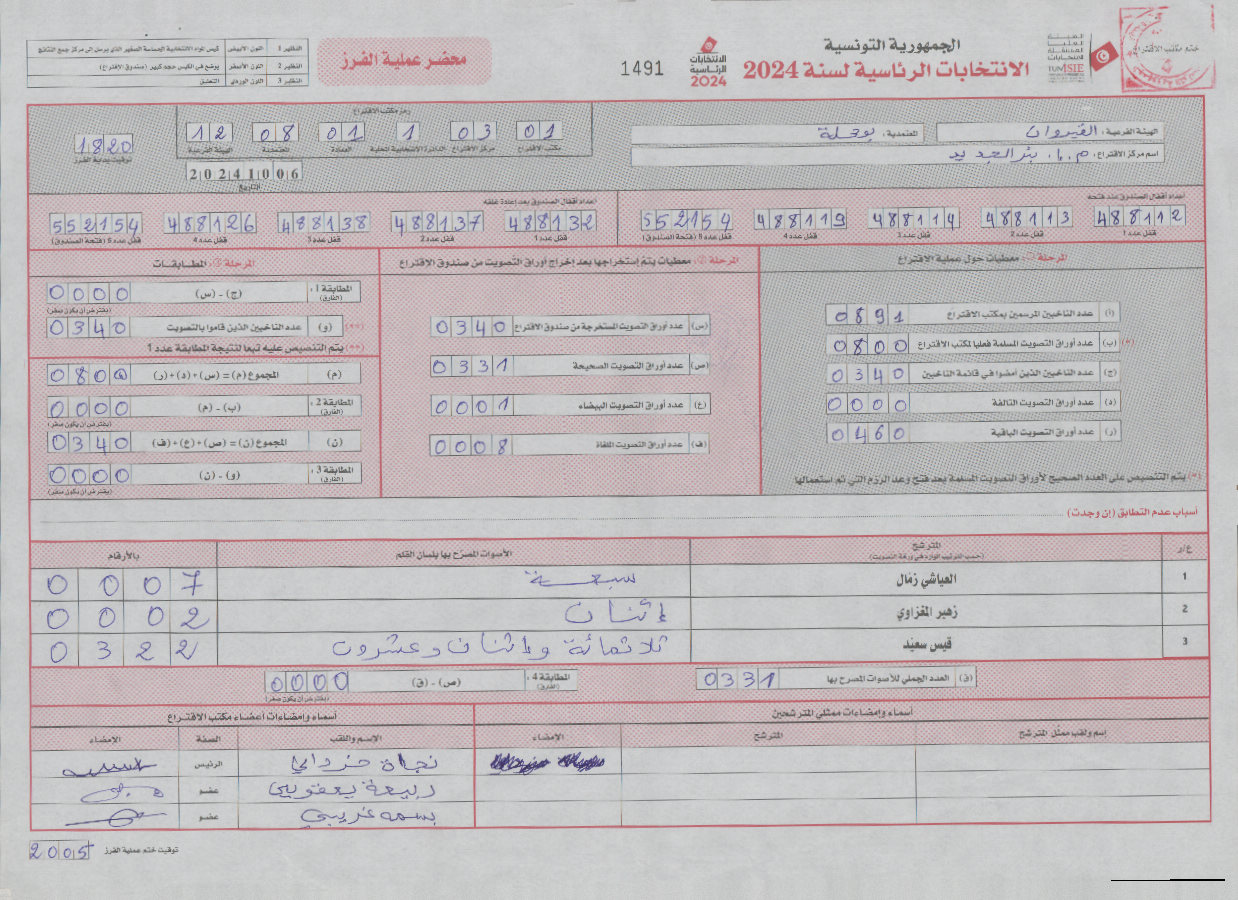 ختم مكتب الاقتراع
الهيئة العليا المستقلة للانتخابات
TUNISIE
الجمهورية التونسية
الانتخابات الرئاسية لسنة 2024
الانتخابات الرئاسية 2024
1491
محضر عملية الفرز
النظير 1 اللون الأبيض كيس المواد الانتخابية الحساسة الصغير الذي يرسل الى مركز جمع النتائج
النظير 2 اللون الأصفر يوضع في الكيس حجم كبير (صندوق الإقتراع)
النظير 3 اللون الوردي التعليق
الهيئة الفرعية : القيروان
المعتمدية : بوحجلة
اسم مركز الإقتراع : م.ا. بئر الجديد
رمز مكتب الاقتراع
01 مكتب الاقتراع
03 مركز الاقتراع
1 الدائرة الانتخابية المحلية
01 العمادة
08 المعتمدية
12 الهيئة الفرعية
20241006
التاريخ
1820
توقيت بداية الفرز
اعداد أقفال الصندوق عند فتحه
488112 قفل عدد 1
488113 قفل عدد 2
488114 قفل عدد 3
488119 قفل عدد 4
552154 قفل عدد 5 (فتحة الصندوق)
اعداد أقفال الصندوق بعد إعادة غلقه
488132 قفل عدد 1
488137 قفل عدد 2
488138 قفل عدد 3
488126 قفل عدد 4
552154 قفل عدد 5 (فتحة الصندوق)
المرحلة ① : معطيات حول عملية الاقتراع
(أ) عدد الناخبين المرسمين بمكتب الاقتراع 0891
(*) (ب) عدد أوراق التصويت المسلمة فعليا لمكتب الاقتراع 0800
(ج) عدد الناخبين الذين أمضوا في قائمة الناخبين 0340
(د) عدد أوراق التصويت التالفة 0000
(ر) عدد أوراق التصويت الباقية 0460
(*) يتم التنصيص على العدد الصحيح لأوراق التصويت المسلمة بعد فتح وعد الرزم التي تم استعمالها
المرحلة ② : معطيات يتم إستخراجها بعد إخراج أوراق التصويت من صندوق الاقتراع
(س) عدد أوراق التصويت المستخرجة من صندوق الاقتراع 0340
(ص) عدد أوراق التصويت الصحيحة 0331
(ع) عدد أوراق التصويت البيضاء 0001
(ف) عدد أوراق التصويت الملغاة 0008
المرحلة ③ : المطابقات
المطابقة 1 : (الفارق) (ج) - (س) 0000
(يفترض أن يكون صفر)
(**) (و) عدد الناخبين الذين قاموا بالتصويت 0340
(**) يتم التنصيص عليه تبعا لنتيجة المطابقة عدد 1
(م) المجموع (م) = (س)+(د)+(ر) 0800
المطابقة 2 : (الفارق) (ب) - (م) 0000
(يفترض أن يكون صفر)
(ن) المجموع (ن) = (ص)+(ع)+(ف) 0340
المطابقة 3 : (الفارق) (و) - (ن) 0000
(يفترض أن يكون صفر)
أسباب عدم التطابق (إن وجدت)
ع/ر المترشح (حسب الترتيب الوارد في ورقة التصويت) الأصوات المصرّح بها بلسان القلم بالأرقام
1 العياشي زمّال سبعة 0007
2 زهير المغزاوي إثنان 0002
3 قيس سعيّد ثلاثمائة واثنان وعشرون 0322
(ق) العدد الجملي للأصوات المصرح بها 0331
المطابقة 4 : (الفارق) (ص) - (ق) 0000
(يفترض أن يكون صفر)
أسماء وإمضاءات ممثلي المترشحين
إسم ولقب ممثل المترشح المترشح الامضاء
أسماء وإمضاءات أعضاء مكتب الاقتراع
الإسم واللقب الصفة الامضاء
الرئيس
ربيعة يعقوبي عضو
بسمه غريبي عضو
توقيت ختم عملية الفرز 2005